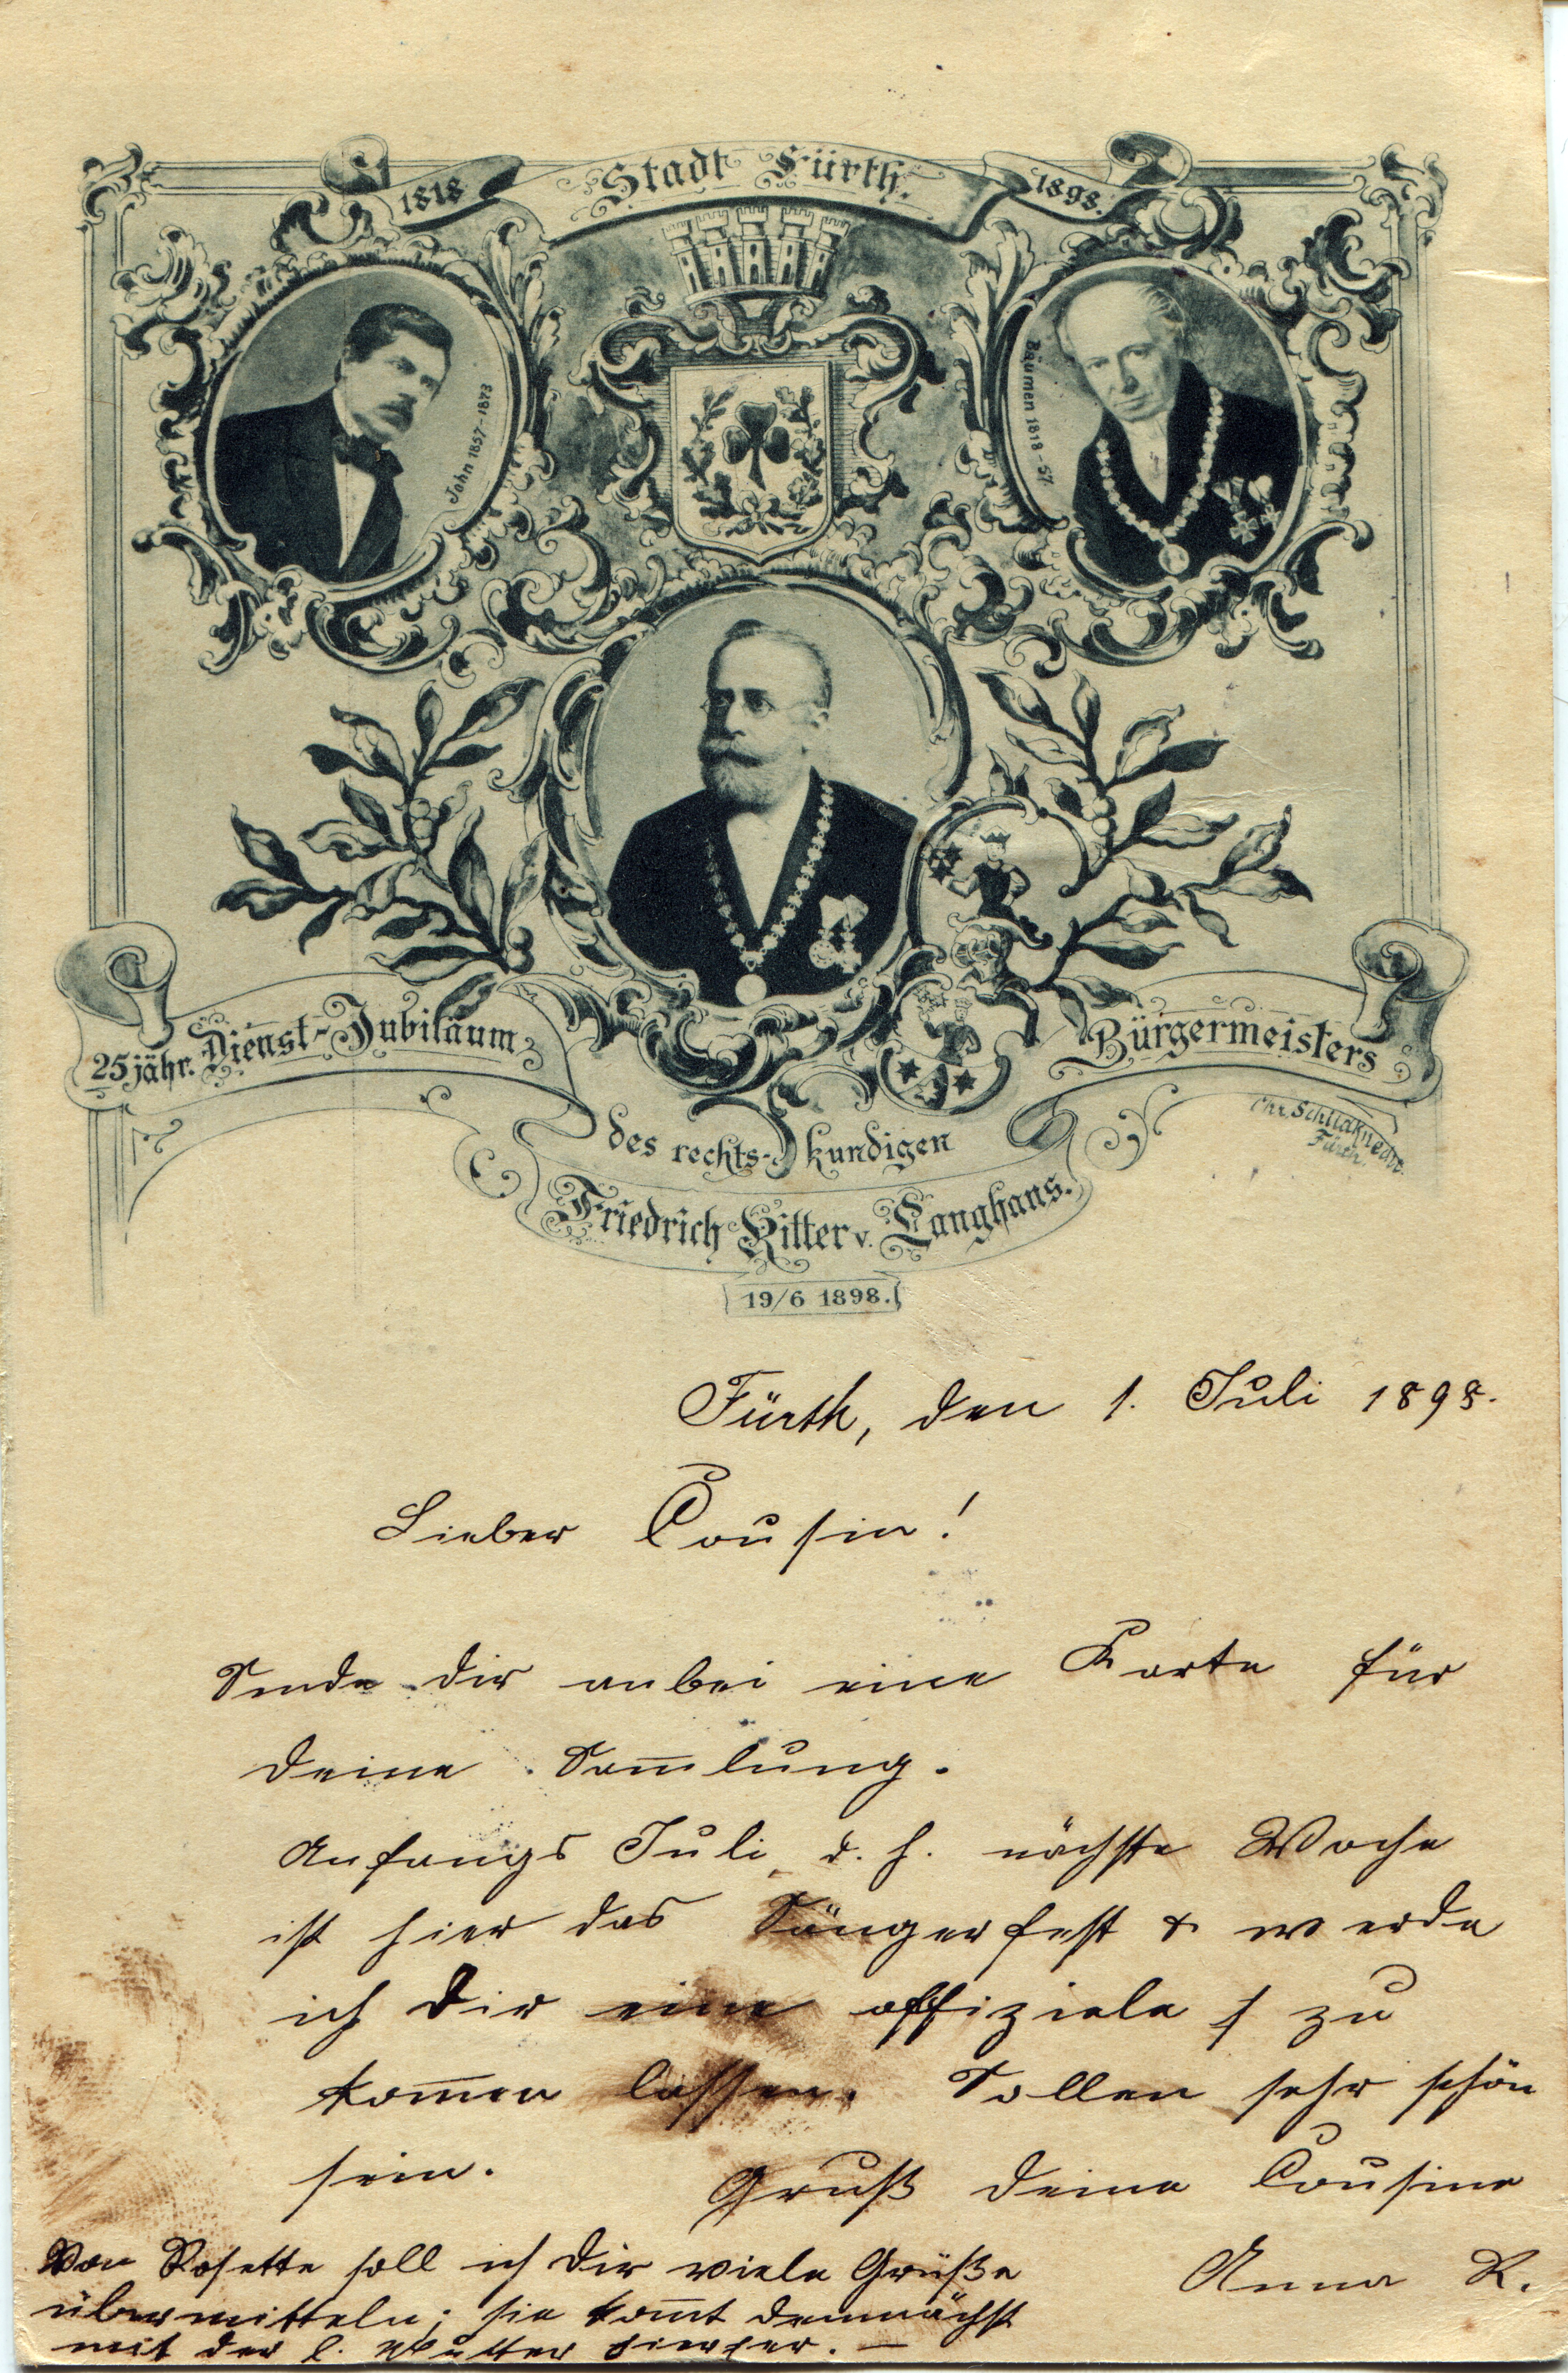 1818 Stadt Fürth. 1898.
John 1857-1873
Bäumen 1818-57
25jähr. Dienst-Jubiläum
des rechts-kundigen
Bürgermeisters
Friedrich Ritter v. Langhans.
19/6 1898.
Fürth.
Fürth, den 1. Juli 1898.
Lieber Cousin!
Sende dir anbei eine Karte für
deine Sam̅lung.
Anfangs Juli, d. h. nächste Woche
ist hier das Sängerfest & werde
ich dir eine offiziele zu
kom̅en lassen. Sollen sehr schön
sein.
Gruß deine Cousine
Anna R.
Von Rosette soll ich dir viele Grüße
übermitteln; sie kom̅t demnächst
mit der l. Mutter hierher. —